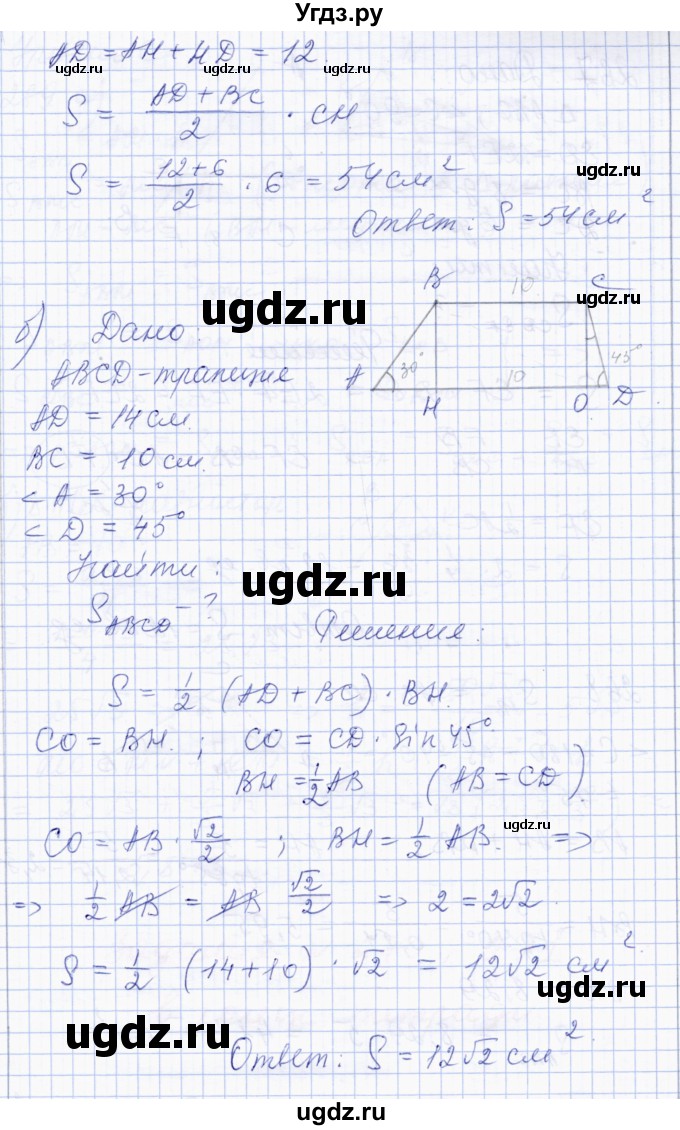 Угдз.ру
AD = AH + HD = 12
ugdz.ru ugdz.ru ugdz.ru
S = (AD + BC)/2 · CH
S = (12+6)/2 · 6 = 54 см²
ugdz.ru
Ответ: S = 54 см²
ugdz.ru
б) Дано:
B 10 C
ugdz.ru
ABCD - трапеция
A 30° 10 45°
H O D
AD = 14 см.
BC = 10 см.
< A = 30°
< D = 45°
Найти:
ugdz.ru
S ABCD - ?
Решения:
S = 1/2 (AD + BC) · BH.
CO = BH. ; CO = CD · Sin 45°
BH = 1/2 AB (AB = CD)
ugdz.ru
CO = AB · √2/2 ; BH = 1/2 AB. =>
ugdz.ru
=> 1/2 AB = AB √2/2 => 2 = 2√2.
S = 1/2 (14+10) · √2 = 12√2 см².
ugdz.ru
ugdz.ru
Ответ: S = 12√2 см².
ugdz.ru